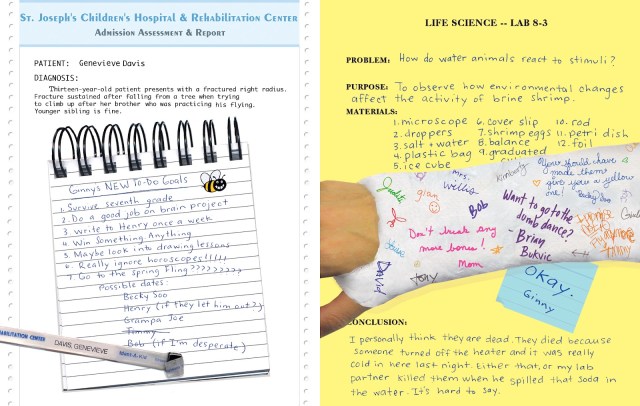 St. Joseph's Children's Hospital & Rehabilitation Center
Admission Assessment & Report
PATIENT: Genevieve Davis
DIAGNOSIS:
Thirteen-year-old patient presents with a fractured right radius.
Fracture sustained after falling from a tree when trying
to climb up after her brother who was practicing his flying.
Younger sibling is fine.
Ginny's NEW To-Do Goals
1. Survive seventh grade
2. Do a good job on brain project
3. Write to Henry once a week
4. Win Something Anything
5. Maybe look into drawing lessons
6. Really ignore horoscopes!!!!!
7. Go to the Spring Fling?????????
Possible dates:
Becky Soo
Henry (if they let him out?)
Grampa Joe
Timmy
Bob (if I'm desperate)
REHABILITATION CENTER
DAVIS, GENEVIEVE
LIFE SCIENCE -- LAB 8-3
PROBLEM: How do water animals react to stimuli?
PURPOSE: To observe how environmental changes
affect the activity of brine shrimp.
MATERIALS:
1. microscope 6. cover slip 10. rod
2. droppers 7. shrimp eggs 11. petri dish
3. salt + water 8. balance 12. foil
4. plastic bag 9. graduated
5. ice cube
Mrs. Willis
Kimberly
Your should have
made them
give you a yellow
one!
Becky Soo
gian
Bob
Want to go to the
dumb dance?
- Brian
Bukvic
Don't break any
more bones!
Mom
David
Okay.
Ginny
CONCLUSION:
I personally think they are dead. They died because
someone turned off the heater and it was really
cold in here last night. Either that, or my lab
partner killed them when he spilled that soda in
the water. It's hard to say.